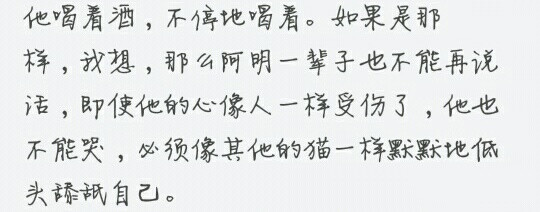 他喝着酒，不停地喝着。如果是那
样，我想，那么阿明一辈子也不能再说
话，即使他的心像人一样受伤了，他也
不能哭，必须像其他的猫一样默默地低
头舔舐自己。